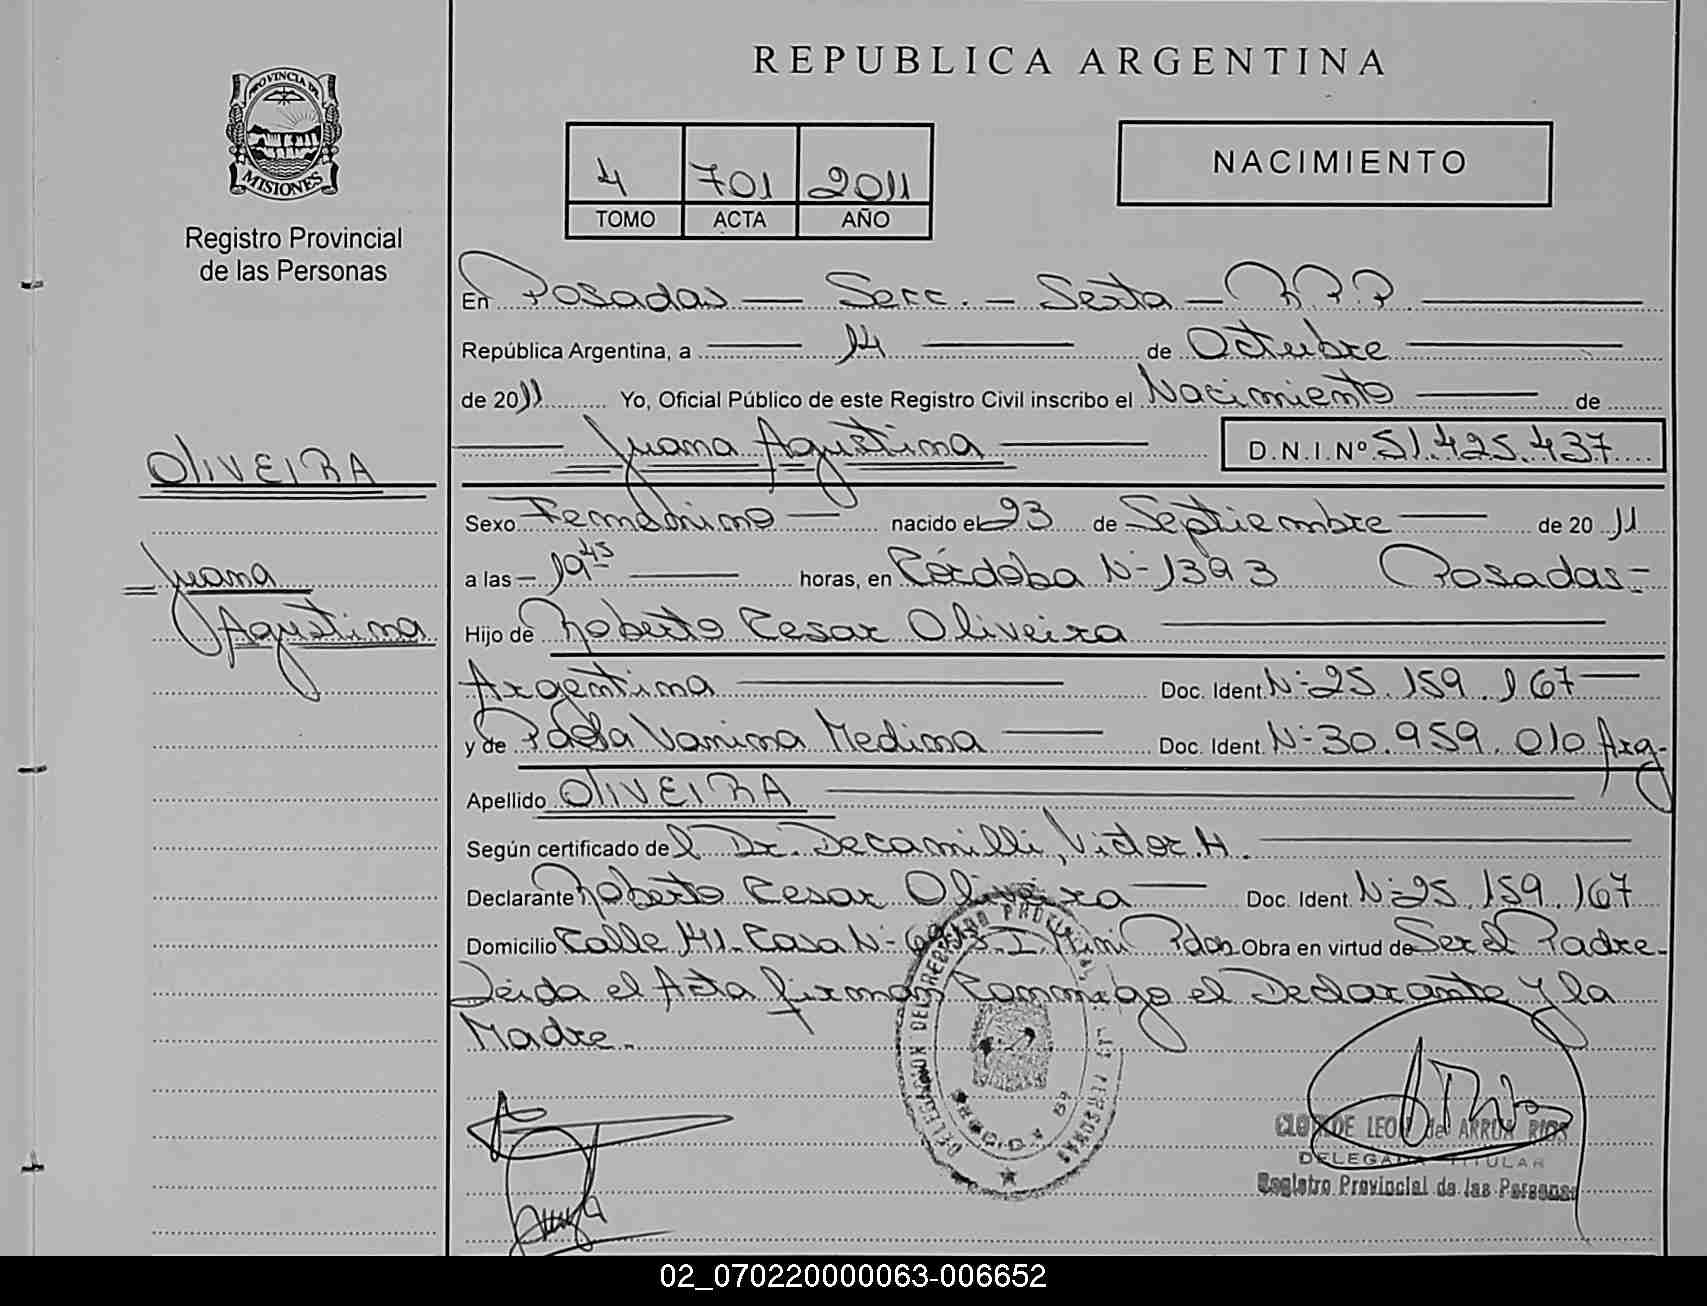 REPUBLICA ARGENTINA
PROVINCIA DE
MISIONES
Registro Provincial
de las Personas
4 701 2011
TOMO ACTA AÑO
NACIMIENTO
En Posadas — Secc. — Sexta — R.P.P.
República Argentina, a — 14 — de Octubre
de 2011 Yo, Oficial Público de este Registro Civil inscribo el Nacimiento — de
— Juana Agustina — D.N.I.Nº 51.425.437
OLIVEIRA
Juana
Agustina
Sexo Femenino — nacido el 23 de Septiembre — de 2011
a las — 19 45 — horas, en Córdoba Nº 1393 Posadas-
Hijo de Roberto Cesar Oliveira
Argentina — Doc. Ident. Nº 25.159.167 —
y de Paola Vanina Medina — Doc. Ident. Nº 30.959.010 Arg-
Apellido OLIVEIRA
Según certificado del Dr. Decamilli, Victor. H.
Declarante Roberto Cesar Oliveira — Doc. Ident. Nº 25.159.167
Domicilio Calle 141. Casa Nº Mini Pdas. Obra en virtud de Ser el Padre-
Leída el Acta firman conmigo el Declarante y la
Madre.
DELEGACION DEL REGISTRO
DE LAS PERSONAS
DELEGADA TITULAR
Registro Provincial de las Personas
02_070220000063-006652